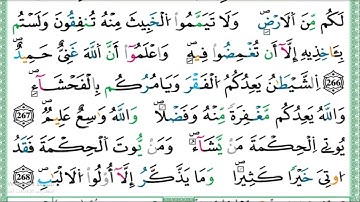 لَكُم مِّنَ الْاَرْضِ ۖ وَلَا تَيَمَّمُوا الْخَبِيثَ مِنْهُ تُنفِقُونَ وَلَسْتُم
بِـَٔاخِذِيهِ إِلَّا أَن تُغْمِضُوا فِيهِ ۚ وَاعْلَمُوا أَنَّ اللَّهَ غَنِىٌّ حَمِيدٌ
266 الشَّيْطٰنُ يَعِدُكُمُ الْفَقْرَ وَيَأْمُرُكُم بِالْفَحْشَآءِ ۖ
وَاللَّهُ يَعِدُكُم مَّغْفِرَةً مِّنْهُ وَفَضْلًا ۗ وَاللَّهُ وَٰسِعٌ عَلِيمٌ 267
يُوتِى الْحِكْمَةَ مَنْ يَّشَآءُ ۚ وَمَنْ يُّوتَ الْحِكْمَةَ فَقَدُ
اوتِىَ خَيْرًا كَثِيرًا ۗ وَمَا يَذَّكَّرُ إِلَّآ أُولُوا الْاَلْبَٰبِ 268